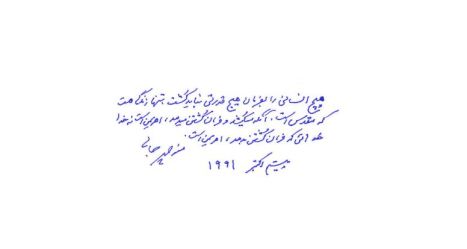 هیچ انسانی را بفرمان هیچ قدرتی نباید کشت. تنها زندگی است
که مقدس است. آنکه میکشد و فرمان کشتن میدهد، اهریمن است نه خدا
خدائی که فرمان کشتن میدهد، اهریمن است.
منوچهر جمالی
بیستم اکتبر ۱۹۹۱